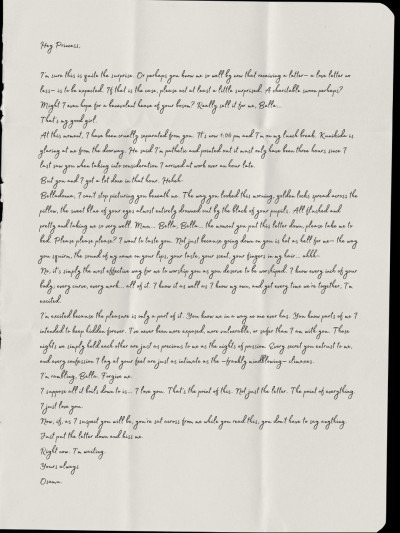 Hey Princess,
I'm sure this is quite the surprise. Or perhaps you know me so well by now that receiving a letter— a love letter no
less— is to be expected. If that is the case, please act at least a little surprised. A charitable swoon perhaps?
Might I even hope for a benevolent heave of your bosom? Really sell it for me, Bella...
That's my good girl.
At this moment, I have been cruelly separated from you. It's now 1:00 pm and I'm on my lunch break. Kunikida is
glaring at me from the doorway. He said I'm pathetic and pointed out it must only have been three hours since I
last saw you when taking into consideration I arrived at work over an hour late.
But you and I got a lot done in that hour. Heheh.
Belladonna, I can't stop picturing you beneath me. The way you looked this morning, golden locks spread across the
pillow, the sweet blue of your eyes almost entirely drowned out by the black of your pupils. All flushed and
pretty and taking me so very well. Mmm... Bella, Bella... the moment you put this letter down, please take me to
bed. Please please please? I want to taste you. Not just because going down on you is hot as hell for me— the way
you squirm, the sound of my name on your lips, your taste, your scent, your fingers in my hair... uhhh.
No, it's simply the most effective way for me to worship you as you deserve to be worshiped. I know every inch of your
body; every curve, every mark... all of it. I know it as well as I know my own, and yet every time we're together, I'm
excited.
I'm excited because the pleasure is only a part of it. You know me in a way no one ever has. You know parts of me I
intended to keep hidden forever. I've never been more exposed, more vulnerable, or safer than I am with you. Those
nights we simply hold each other are just as precious to me as the nights of passion. Every secret you entrust to me,
and every confession I lay at your feet are just as intimate as the —frankly mindblowing— climaxes.
I'm rambling, Bella. Forgive me.
I suppose all it boils down to is... I love you. That's the point of this. Not just the letter. The point of everything.
I just love you.
Now, if, as I suspect you will be, you're sat across from me while you read this, you don't have to say anything.
Just put the letter down and kiss me.
Right now. I'm waiting.
Yours always
Osamu.